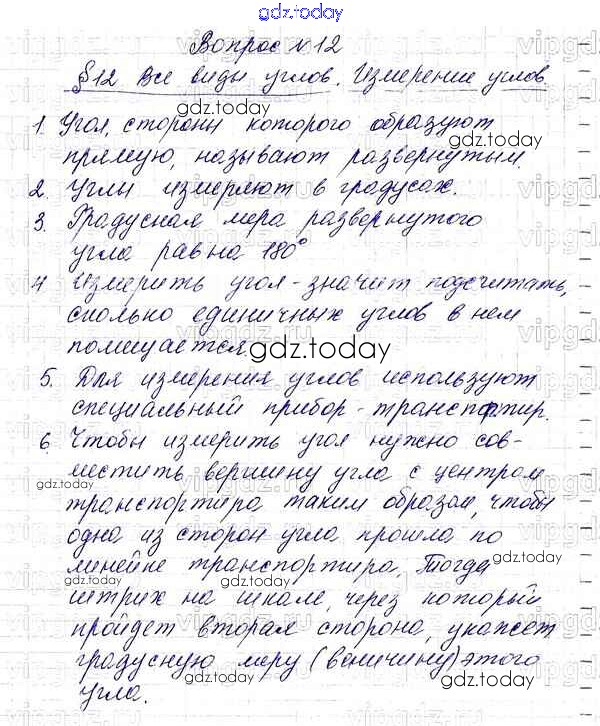 gdz.today
Вопрос №12
§12 Все виды углов. Измерение углов
gdz.today
1. Угол, стороны которого образуют
прямую, называют развернутым.
2. Углы измеряют в градусах.
3. Градусная мера развернутого
угла равна 180°
gdz.today
4 Измерить угол - значит подсчитать,
сколько единичных углов в нем
помещается.
gdz.today
5. Для измерения углов используют
специальный прибор - транспортир.
gdz.today
6. Чтобы измерить угол нужно сов-
местить вершину угла с центром
gdz.today
транспортира таким образом, чтобы
gdz.today
одна из сторон угла прошла по
линейке транспортира. Тогда
gdz.today
штрих на шкале, через который
gdz.today
пройдет вторая сторона, укажет
gdz.today
градусную меру (величину) этого
gdz.today
угла.
gdz.today